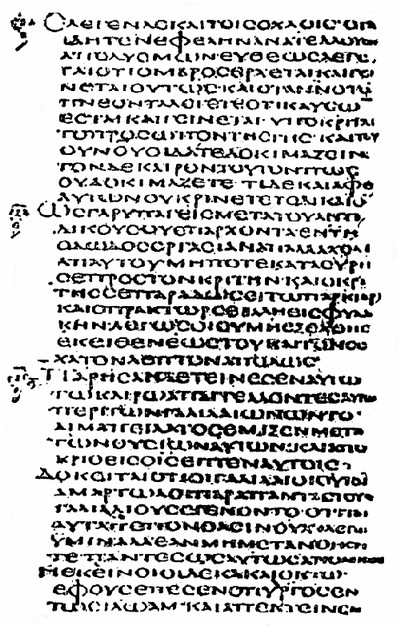 ΕΛΕΓΕΝΔΕΚΑΙΤΟΙϹΟΧΛΟΙϹΟΤΑ
ΙΔΗΤΕΝΕΦΕΛΗΝΑΝΑΤΕΛΛΟΥϹΑ
ΑΠΟΔΥϹΜΩΝΕΥΘΕΩϹΛΕΓΕ
ΤΑΙΟΤΙΟΜΒΡΟϹΕΡΧΕΤΑΙΚΑΙΓΕΙ
ΝΕΤΑΙΟΥΤΩϹΚΑΙΟΤΑΝΝΟΤΟ
ΠΝΕΟΝΤΑΛΕΓΕΤΕΟΤΙΚΑΥϹΩ
ΕϹΤΑΙΚΑΙΓΕΙΝΕΤΑΙΥΠΟΚΡΙΤΑΙ
ΤΟΠΡΟϹΩΠΟΝΤΗϹΓΗϹΚΑΙΤΟΥ
ΟΥΝΟΥΟΙΔΑΤΕΔΟΚΙΜΑΖΕΙΝ
ΤΟΝΔΕΚΑΙΡΟΝΤΟΥΤΟΝΠΩϹ
ΟΥΔΟΚΙΜΑΖΕΤΕΤΙΔΕΚΑΙΑΦΕ
ΑΥΤΩΝΟΥΚΡΙΝΕΤΕΤΟΔΙΚΑΙΟ
ΩϹΓΑΡΥΠΑΓΕΙϹΜΕΤΑΤΟΥΑΝΤΙ
ΔΙΚΟΥϹΟΥΕΠΑΡΧΟΝΤΑΕΝΤΗ
ΟΔΩΔΟϹΕΡΓΑϹΙΑΝΑΠΑΛΛΑΧΘΑΙ
ΑΠΑΥΤΟΥΜΗΠΟΤΕΚΑΤΑϹΥΡΗ
ϹΕΠΡΟϹΤΟΝΚΡΙΤΗΝΚΑΙΟΚΡΙ
ΤΗϹϹΕΠΑΡΑΔΩϹΕΙΤΩΠΡΑΚΤΟΡΙ
ΚΑΙΟΠΡΑΚΤΩΡϹΕΒΑΛΗΕΙϹΦΥΛΑ
ΚΗΝΛΕΓΩϹΟΙΟΥΜΗΕΞΕΛΘΗϹ
ΕΚΕΙΘΕΝΕΩϹΤΟΥΚΑΙΤΟΝΕϹ
ΧΑΤΟΝΛΕΠΤΟΝΑΠΟΔΩϹ
ΠΑΡΗϹΑΝΔΕΤΕΙΝΕϹΕΝΑΥΤΩ
ΤΩΚΑΙΡΩΑΠΑΓΓΕΛΛΟΝΤΕϹΑΥΤΩ
ΠΕΡΙΤΩΝΓΑΛΙΛΑΙΩΝΩΝΤΟ
ΑΙΜΑΠΕΙΛΑΤΟϹΕΜΙΞΕΝΜΕΤΑ
ΤΩΝΘΥϹΙΩΝΑΥΤΩΝΚΑΙΑΠΟ
ΚΡΙΘΕΙϹΟΙϹΕΙΠΕΝΑΥΤΟΙϹ
ΔΟΚΕΙΤΑΙΟΤΙΟΙΓΑΛΙΛΑΙΟΙΟΥΤΟΙ
ΑΜΑΡΤΩΛΟΙΠΑΡΑΠΑΝΤΑϹΤΟΥϹ
ΓΑΛΙΛΑΙΟΥϹΕΓΕΝΟΝΤΟΟΤΙΤΟΙ
ΑΥΤΑΠΕΠΟΝΘΑϹΙΝΟΥΧΙΛΕΓΩ
ΥΜΙΝΑΛΛΕΑΝΜΗΜΕΤΑΝΟΗϹΗ
ΤΕΠΑΝΤΕϹΩϹΑΥΤΩϹΑΠΟΛΕΙϹΘΕ
ΗΕΚΕΙΝΟΙΟΙΔΕΚΑΚΑΙΟΚΤΩ
ΕΦΟΥϹΕΠΕϹΕΝΟΠΥΡΓΟϹΕΝ
ΤΩϹΙΛΩΑΜΚΑΙΑΠΕΚΤΕΙΝΕΝ